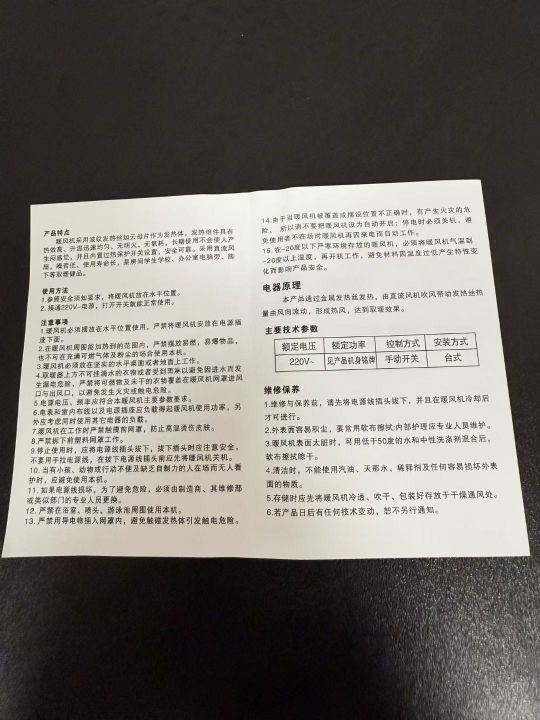 产品特点
暖风机采用波纹发热丝如云母片作为发热体，发热组件具有
热效高、升温迅速均匀、无明火、无氧耗，长期使用不会使人产
生闷感觉，并且内置过热保护开关设置，安全可靠。采用直流风
扇，噪音低、使用寿命长，是房间学生学校、办公室电脑旁、脚
下等取暖健品。
使用方法
1.参照安全须知要求，将暖风机放在水平位置。
2.接通220V~电源，打开开关就能正常使用。
注意事项
1.暖风机必须摆放在水平位置使用，严禁将暖风机安放在电源插
座下面。
2.在暖风机周围能加热到的范围内，严禁摆放易燃、易爆物品，
也不可在充满可燃气体及粉尘的场合使用本机。
3.暖风机必须放在坚实的水平桌面或者地面上工作。
4.取暖器上方不可挂滴水的衣物或者受到雨淋以避免因进水而发
生漏电危险，严禁将可燃物及未干的衣物覆盖在暖风机网罩进风
口与出风口，以避免发生火灾或触电危险。
5.电源电压、频率应符合本暖风机主要参数要求。
6.电表和室内布线以及电源插座应负载得起暖风机使用功率，另
外应考虑同时使用其它电器的负载。
7.暖风机在工作时严禁触摸前网罩，防止高温烫伤皮肤。
8.严禁拆下前塑料网罩工作。
9.停止使用时，应将电源线插头拔下，拔下插头时应注意安全，
不要用手拉电源线，在拔下电源线插头前应先将暖风机关机。
10.当有小孩、动物或行动不便及缺乏自制力的人在场而无人看
护时，应避免使用本机。
11.如果电源线损坏，为了避免危险，必须由制造商、其维修部
或类似部门的专业人员更换。
12.严禁在浴室、喷头、游泳池周围使用本机。
13.严禁用导电物插入网罩内，避免触碰发热体引发触电危险。
14.由于当暖风机被覆盖或摆设位置不正确时，有产生火灾的危
险，所以请不要把暖风机设为自动开启；停电时必须关机，避
免使用者不在场时暖风机再因来电而自动工作。
15.在-20度以下严寒环境存放的暖风机，必须将暖风机气温到
-20度以上温度，再开机工作，避免材料因温度过低产生特性变
化而影响产品安全。
电器原理
本产品通过金属发热丝发热，由直流风机吹风带动发热丝热
量由风向流动，形成热风，达到取暖效果。
主要技术参数
额定电压 额定功率 控制方式 安装方式
220V~ 见产品机身铭牌 手动开关 台式
维修保养
1.维修与保养前，请先将电源线插头拔下，并且在暖风机冷却后
才可进行。
2.外表面容易积尘，要常用软布擦拭:内部护理应专业人员维护。
3.暖风机表面太脏时，可用低于50度的水和中性洗涤剂混合后，
软布擦拭晾干。
4.清洁时，不能使用汽油、天那水、稀释剂及任何容易损坏外表
面的物质。
5.存储时应先将暖风机冷透、吹干、包装好存放于干燥通风处。
6.若产品日后有任何技术变动，恕不另行通知。